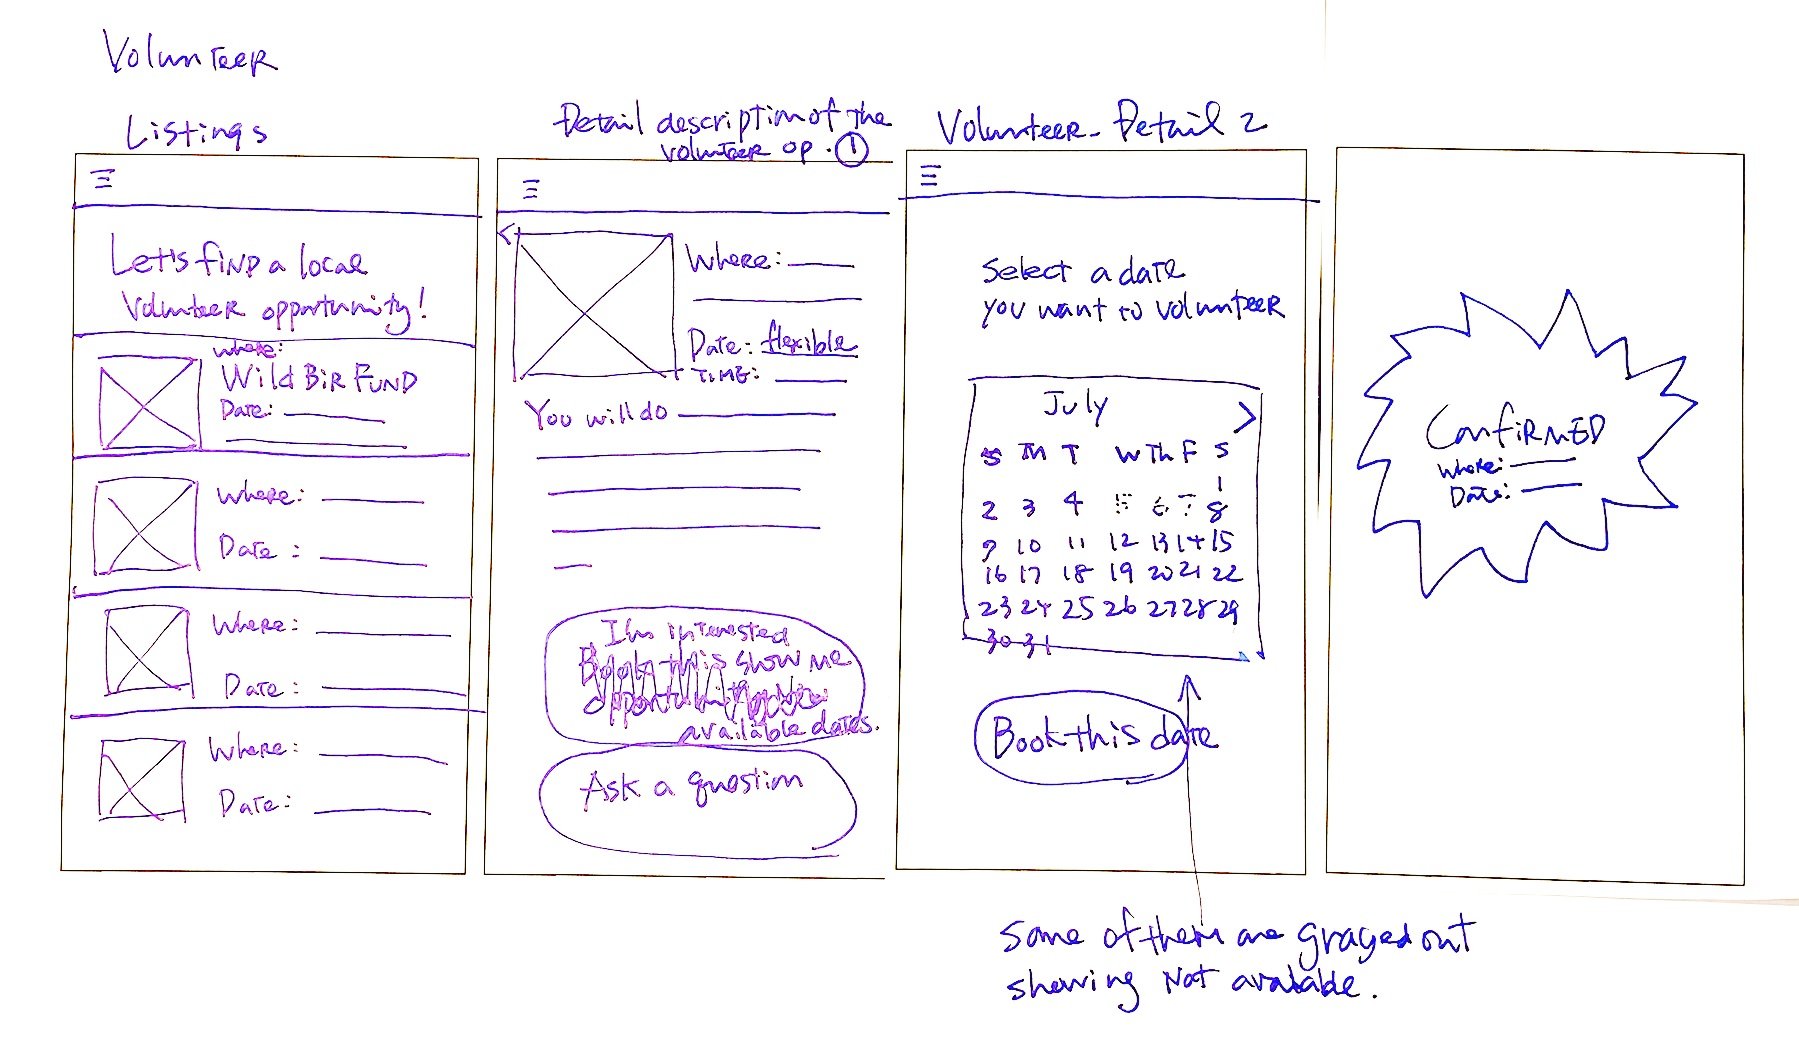 Volunteer
Listings
Let's find a local
Volunteer opportunity!
where:
Wild Bir Fund
Date:
Where:
Date:
Where:
Date:
Where:
Date:
Detail description of the
volunteer op. ①
<
Where:
Date: flexible
TIME:
You will do
I'm interested
Book this show me
opportunity
available dates.
Ask a question
Volunteer - Detail 2
Select a date
you want to volunteer
July >
S M T W Th F S
1
2 3 4 5 6 7 8
9 10 11 12 13 14 15
16 17 18 19 20 21 22
23 24 25 26 27 28 29
30 31
Book this date
Some of them are grayed out
showing Not available.
Confirmed
Where:
Date: